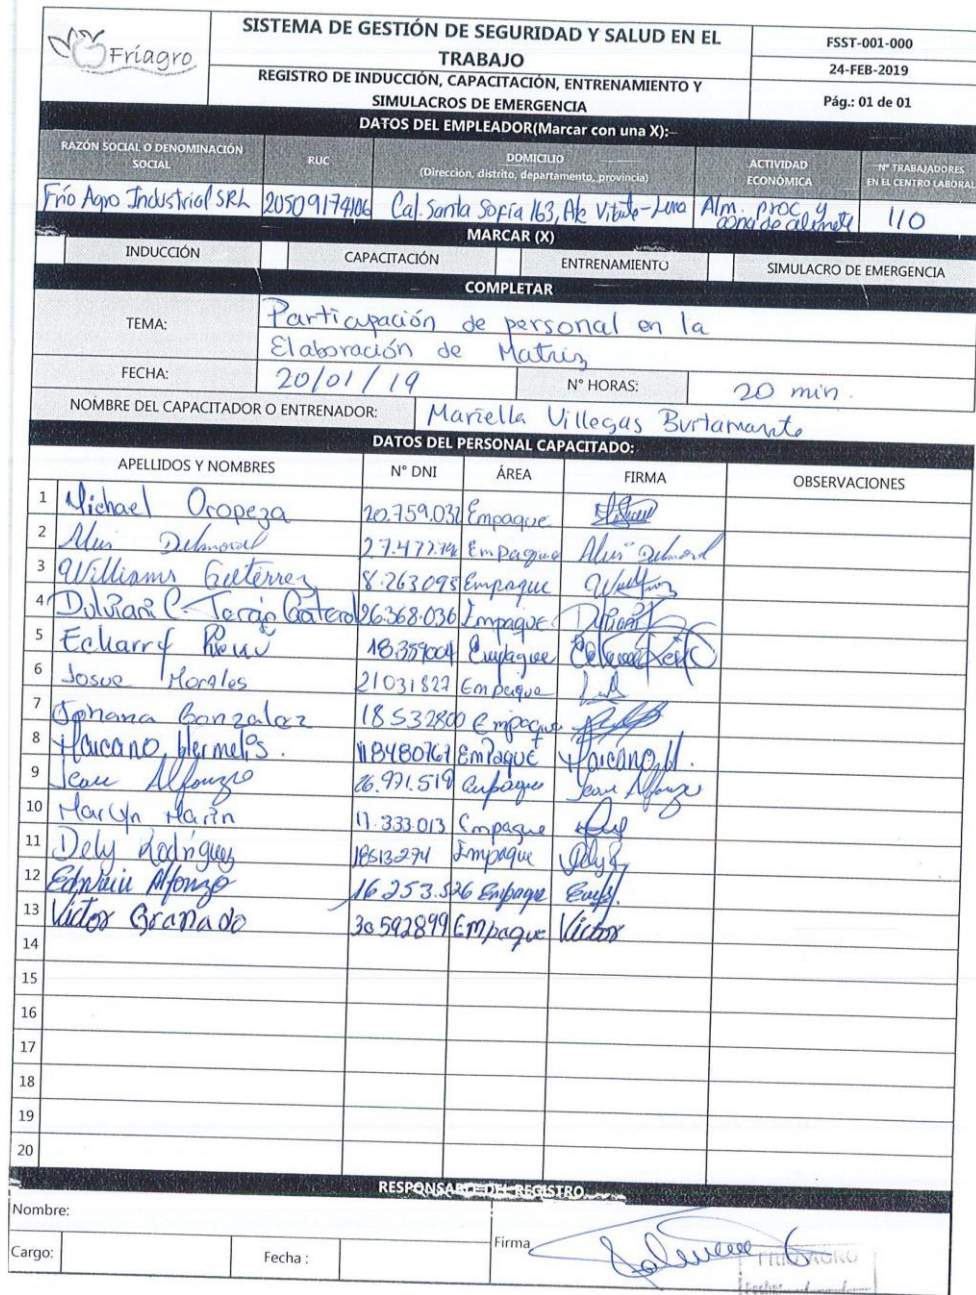 Friagro
SISTEMA DE GESTIÓN DE SEGURIDAD Y SALUD EN EL
TRABAJO
REGISTRO DE INDUCCIÓN, CAPACITACIÓN, ENTRENAMIENTO Y
SIMULACROS DE EMERGENCIA
FSST-001-000
24-FEB-2019
Pág.: 01 de 01
DATOS DEL EMPLEADOR(Marcar con una X):
RAZÓN SOCIAL O DENOMINACIÓN SOCIAL RUC DOMICILIO (Dirección, distrito, departamento, provincia) ACTIVIDAD ECONÓMICA N° TRABAJADORES EN EL CENTRO LABORAL
Frío Agro Industrial SRL 20509174106 Cal. Santa Sofía 163, Ate Vitarte-Lima Alm. proc y 110
MARCAR (X)
INDUCCIÓN CAPACITACIÓN ENTRENAMIENTO SIMULACRO DE EMERGENCIA
COMPLETAR
TEMA: Participación de personal en la
Elaboración de Matriz
FECHA: 20/01/19 N° HORAS: 20 min.
NOMBRE DEL CAPACITADOR O ENTRENADOR: Mariella Villegas
DATOS DEL PERSONAL CAPACITADO:
APELLIDOS Y NOMBRES N° DNI ÁREA FIRMA OBSERVACIONES
1 Michael Oropeza 20.759.032 Empaque
2 Empaque
3 Williams Gutierrez 8.263.095 Empaque
4 Terán 26.368.036 Empaque
5 Echarry Empaque
6 Josue Morales 21031827 Empaque
7 Johana Gonzalez 18532800 Empaque
8 Empaque
9 Jean Alfonzo 26.971.519 Empaque Jean Alfonzo
10 Marlyn Marin 11.333.013 Empaque
11 Dely Rodriguez 18513274 Empaque
12 Alfonzo 16.253.526 Empaque
13 Victor Granado 30592899 Empaque Victor
14
15
16
17
18
19
20
RESPONSABLE DEL REGISTRO
Nombre:
Cargo: Fecha : Firma
FRIO AGRO